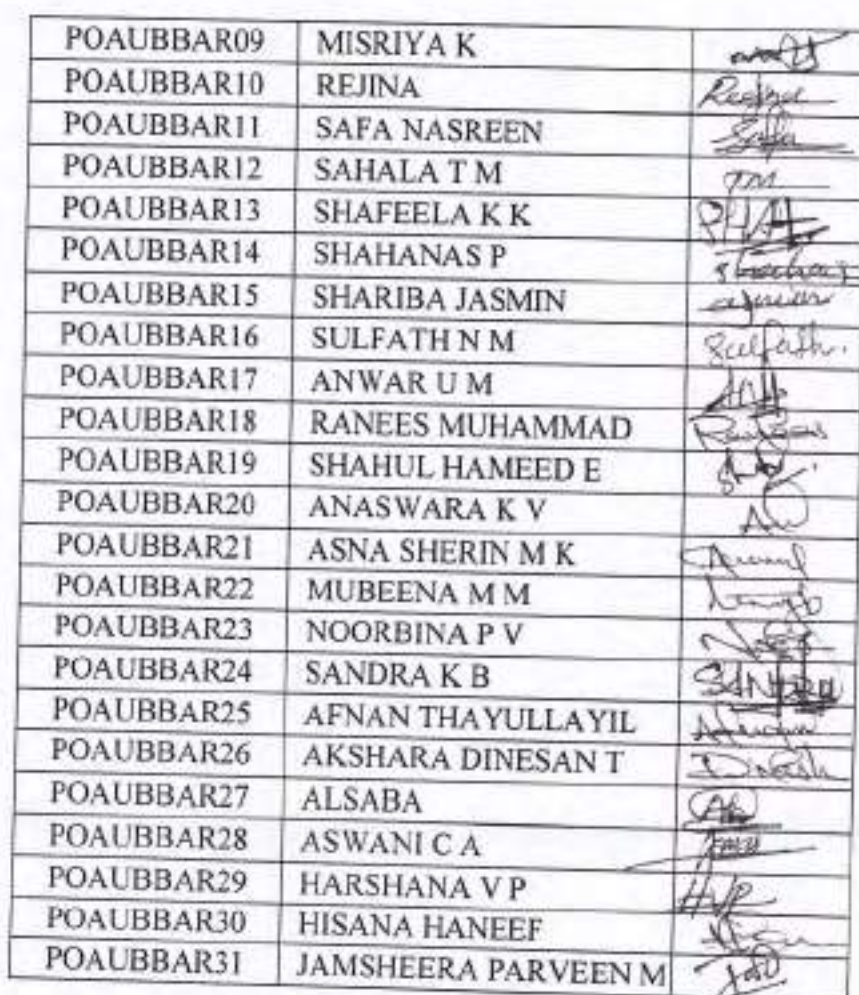 POAUBBAR09 MISRIYA K
POAUBBAR10 REJINA Rejina
POAUBBAR11 SAFA NASREEN Safa
POAUBBAR12 SAHALA T M TM
POAUBBAR13 SHAFEELA K K
POAUBBAR14 SHAHANAS P
POAUBBAR15 SHARIBA JASMIN
POAUBBAR16 SULFATH N M Sulfath.
POAUBBAR17 ANWAR U M
POAUBBAR18 RANEES MUHAMMAD
POAUBBAR19 SHAHUL HAMEED E
POAUBBAR20 ANASWARA K V
POAUBBAR21 ASNA SHERIN M K
POAUBBAR22 MUBEENA M M
POAUBBAR23 NOORBINA P V
POAUBBAR24 SANDRA K B SANDRA
POAUBBAR25 AFNAN THAYULLAYIL
POAUBBAR26 AKSHARA DINESAN T
POAUBBAR27 ALSABA
POAUBBAR28 ASWANI C A
POAUBBAR29 HARSHANA V P HVP
POAUBBAR30 HISANA HANEEF
POAUBBAR31 JAMSHEERA PARVEEN M